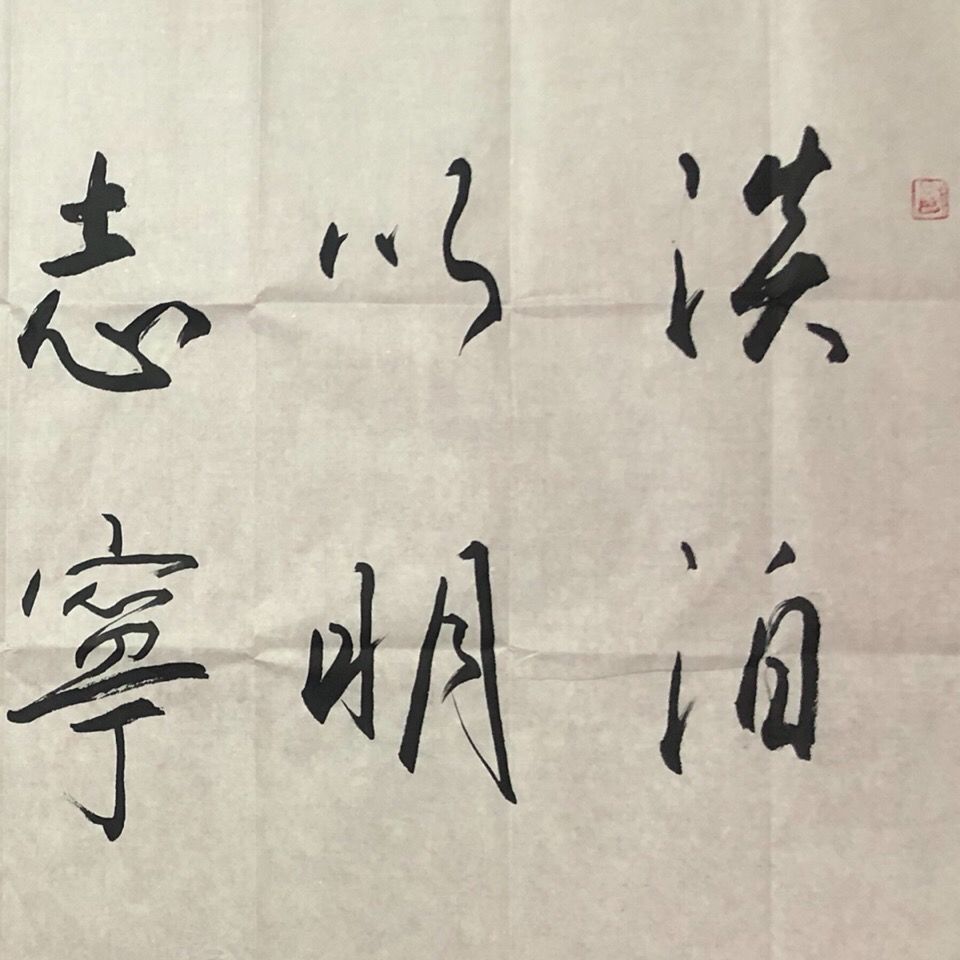 淡泊
以明
志寧